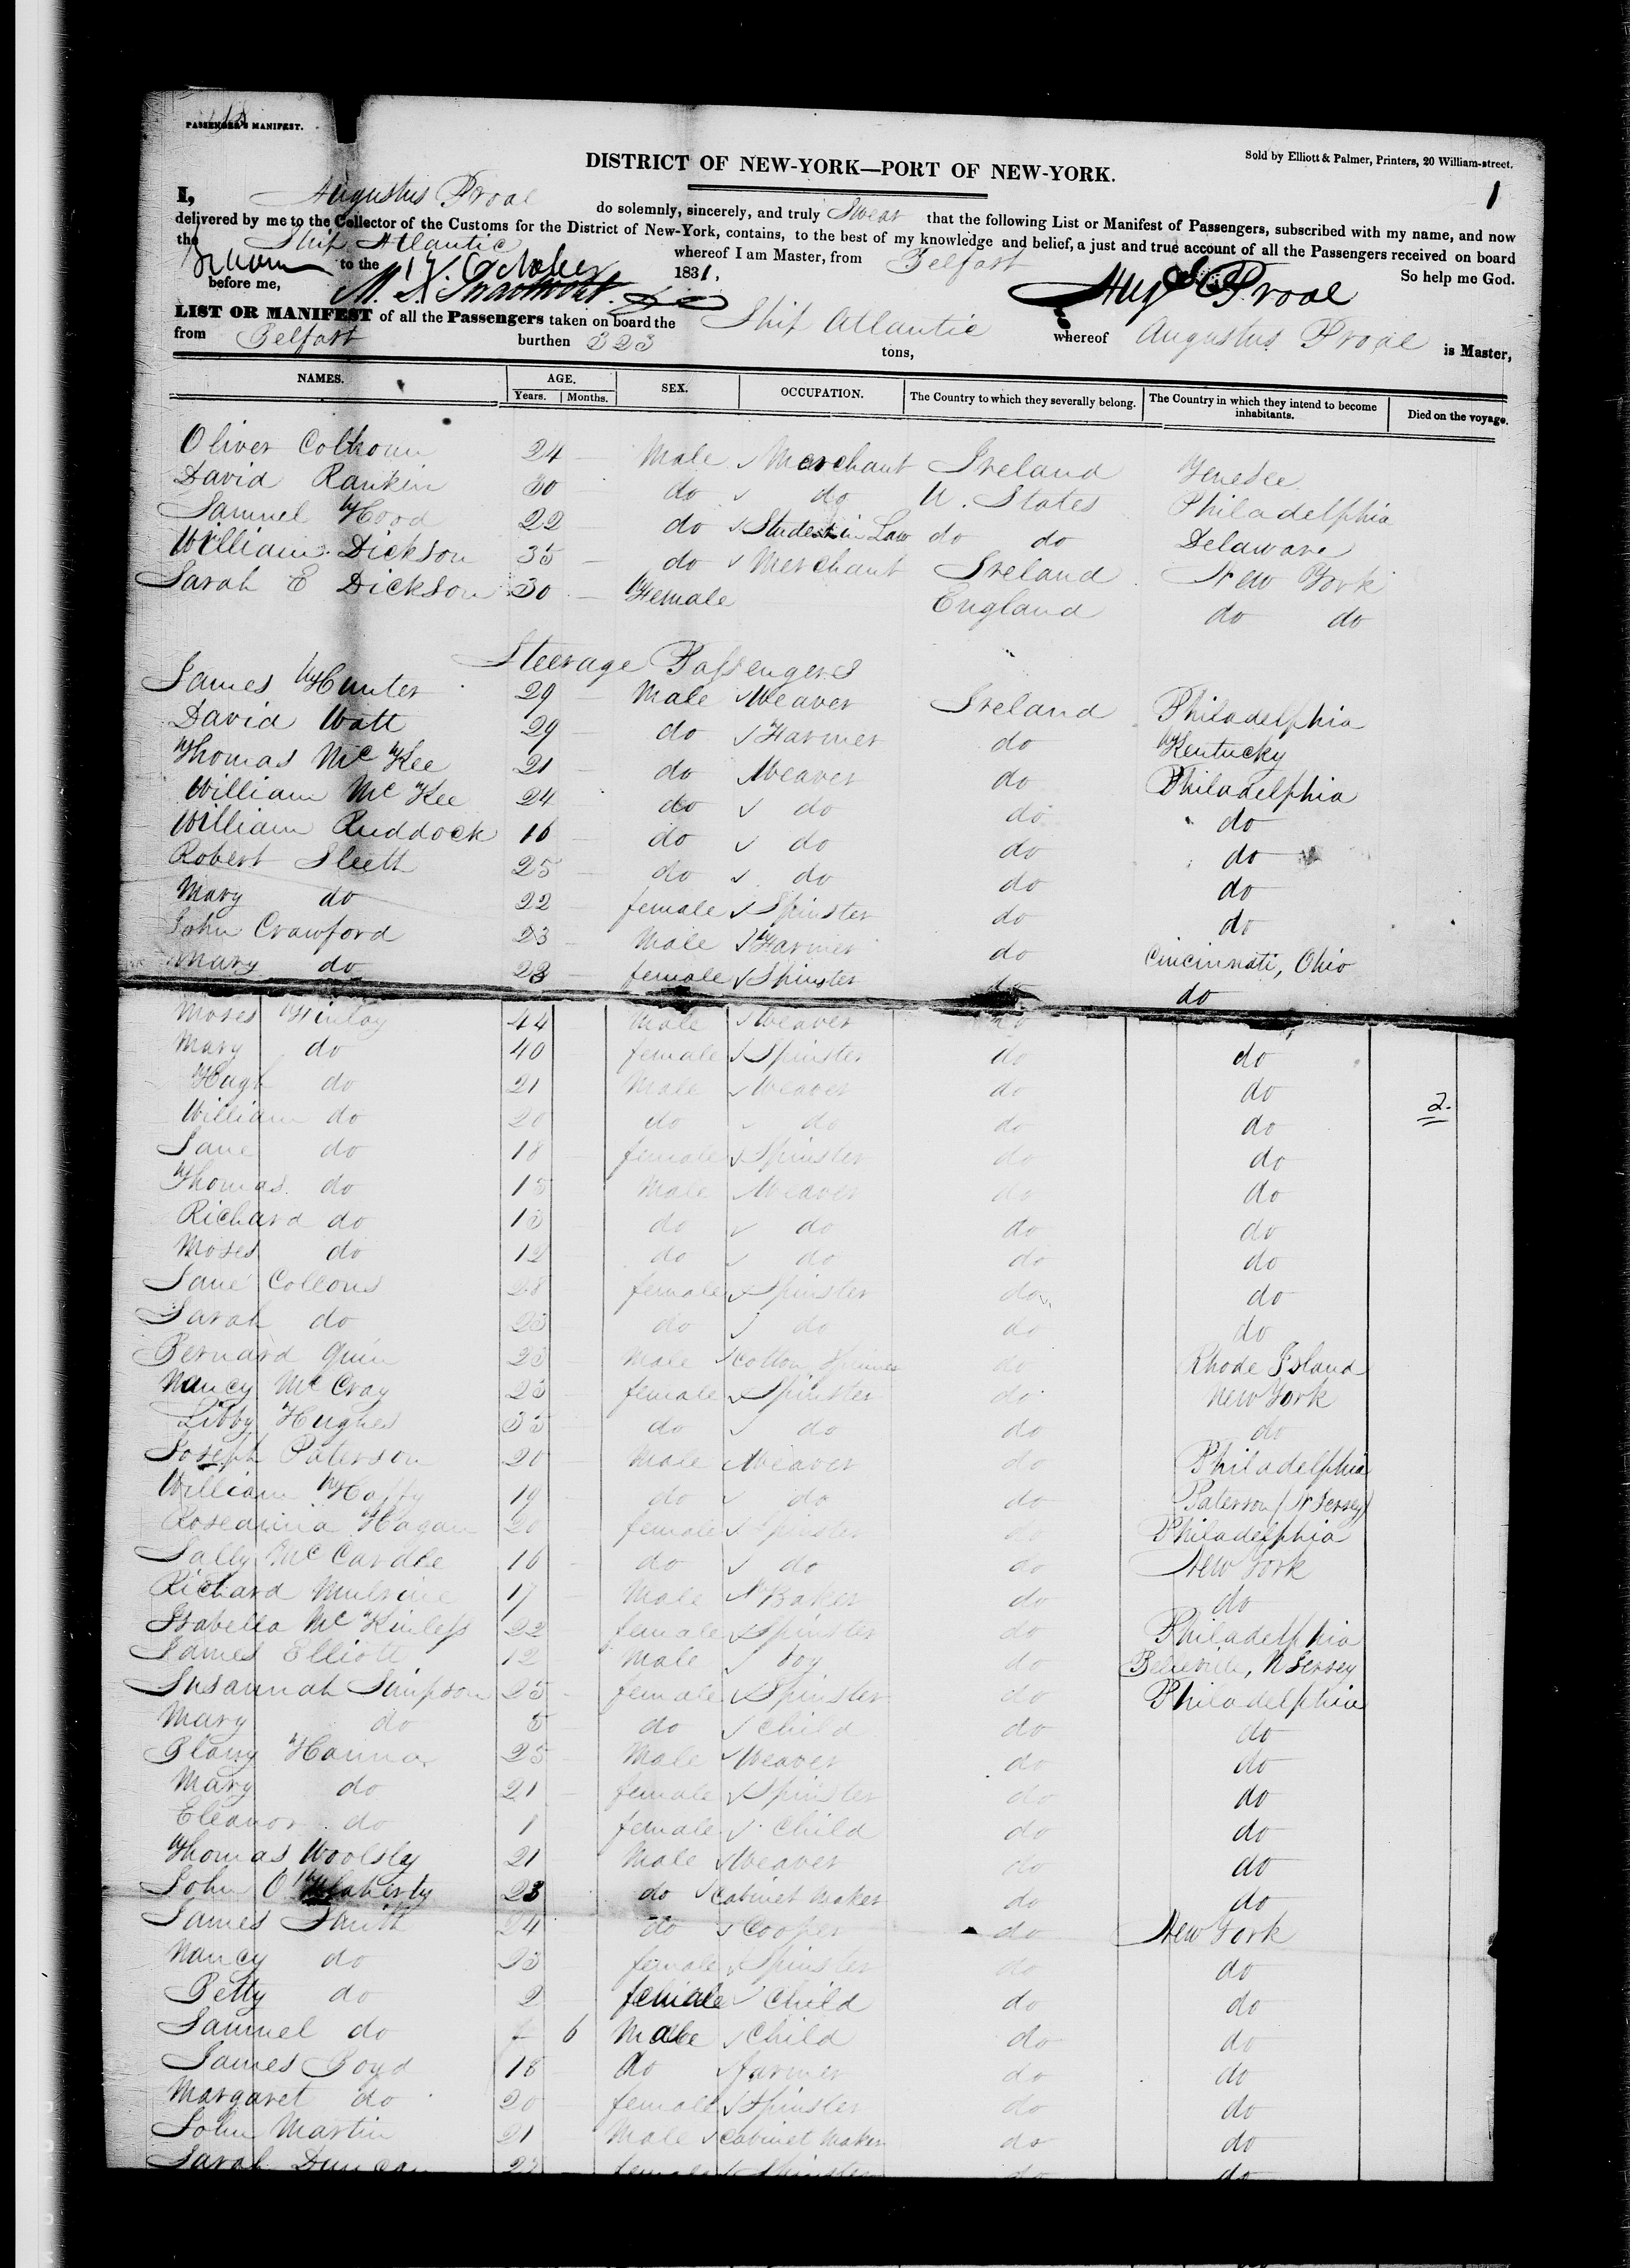 PASSENGER'S MANIFEST.
Sold by Elliott & Palmer, Printers, 20 William-street.
DISTRICT OF NEW-YORK—PORT OF NEW-YORK.
1
I, Augustus Proal do solemnly, sincerely, and truly Swear that the following List or Manifest of Passengers, subscribed with my name, and now
delivered by me to the Collector of the Customs for the District of New-York, contains, to the best of my knowledge and belief, a just and true account of all the Passengers received on board
the Ship Atlantic whereof I am Master, from Belfast
Sworn to the 17 October 1831, So help me God.
before me, Augs Proal
LIST OR MANIFEST of all the Passengers taken on board the Ship Atlantic whereof Augustus Proal is Master,
from Belfast burthen 323 tons,
NAMES. AGE. SEX. OCCUPATION. The Country to which they severally belong. The Country in which they intend to become inhabitants. Died on the voyage.
Years. Months.
Oliver Colhoun 24 Male Merchant Ireland Genesee
David Rankin 30 do do U. States Philadelphia
Samuel Hood 22 do Student in Law do do Delaware
William Dickson 35 do Merchant Ireland New York
Sarah E Dickson 30 Female England do do
Steerage Passengers
James Hunter 29 Male Weaver Ireland Philadelphia
David Watt 29 do Farmer do Kentucky
Thomas McKee 21 do Weaver do Philadelphia
William McKee 24 do do do do
William Ruddock 16 do do do do
Robert Sleeth 25 do do do do
Mary do 22 female Spinster do do
John Crawford 23 Male Farmer do Cincinnati, Ohio
Mary do 23 female Spinster do do
Moses Finlay 44 Male Weaver do
Mary do 40 female Spinster do do
Hugh do 21 Male Weaver do do
William do 20 do do do do
2.
Jane do 18 female Spinster do do
Thomas do 15 Male Weaver do do
Richard do 13 do do do do
Moses do 12 do do do do
Jane Collons 28 female Spinster do do
Sarah do 23 do do do do
Bernard Quin 23 Male Cotton Spinner do Rhode Island
Nancy McCray 23 female Spinster do New York
Libby Hughes 35 do do do do
Joseph Paterson 20 Male Weaver do Philadelphia
William Haffy 19 do do do Paterson (N Jersey)
Roseanna Hagan 20 female Spinster do Philadelphia
Sally McCardle 16 do do do New York
Richard Mulvine 17 Male Baker do do
Isabella McKinless 22 female Spinster do Philadelphia
James Elliott 12 Male boy do Belleville, N Jersey
Susannah Simpson 25 female Spinster do Philadelphia
Mary do 5 do Child do do
Blany Hanna 25 Male Weaver do do
Mary do 21 female Spinster do do
Eleanor do 1 female Child do do
Thomas Woolsey 21 Male Weaver do do
John O'Flaherty 23 do Cabinet Maker do do
James Smith 24 do Cooper do New York
Nancy do 23 female Spinster do do
Betty do 2 female Child do do
Samuel do 6 Male Child do do
James Boyd 18 do farmer do do
Margaret do 20 female Spinster do do
John Martin 21 Male Cabinet Maker do do
Sarah Duncan 22 female Spinster do do